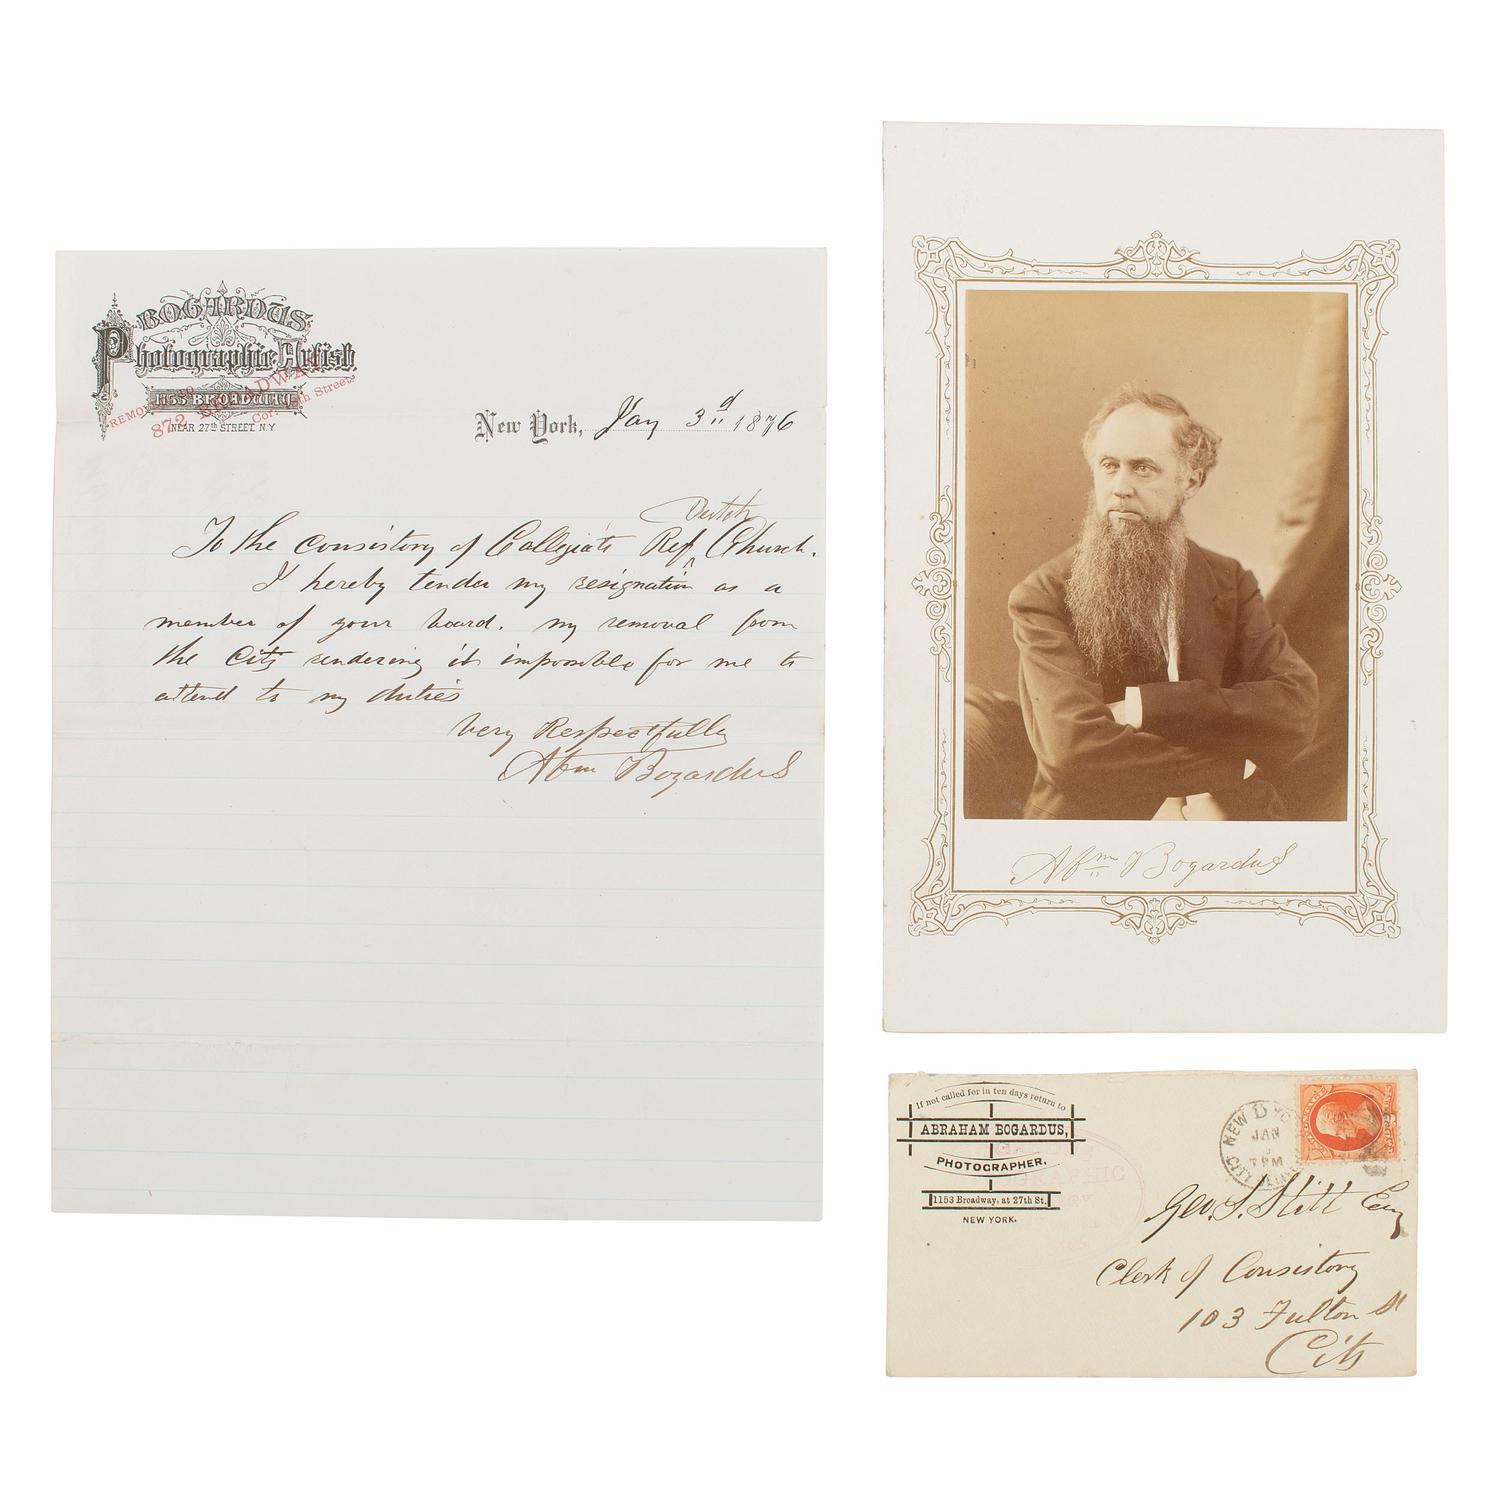 BOGARDUS
Photographic Artist.
1153 BROADWAY
NEAR 27th STREET, N.Y
REMOVED TO
872 BROADWAY
Cor. 18th Street.
New York, Jany 3d 1876
Dutch
To the Consistory of Collegiate Ref ^ Church.
I hereby tender my resignation as a
member of your board. my removal from
the City rendering it impossible for me to
attend to my duties
Very Respectfully
Abm Bogardus
Abm Bogardus
If not called for in ten days return to
ABRAHAM BOGARDUS,
PHOTOGRAPHER,
1153 Broadway, at 27th St.
NEW YORK.
NEW YO
JAN
7 PM
CITY
Geo. S. Stitt Esq
Clerk of Consistory
103 Fulton St
City